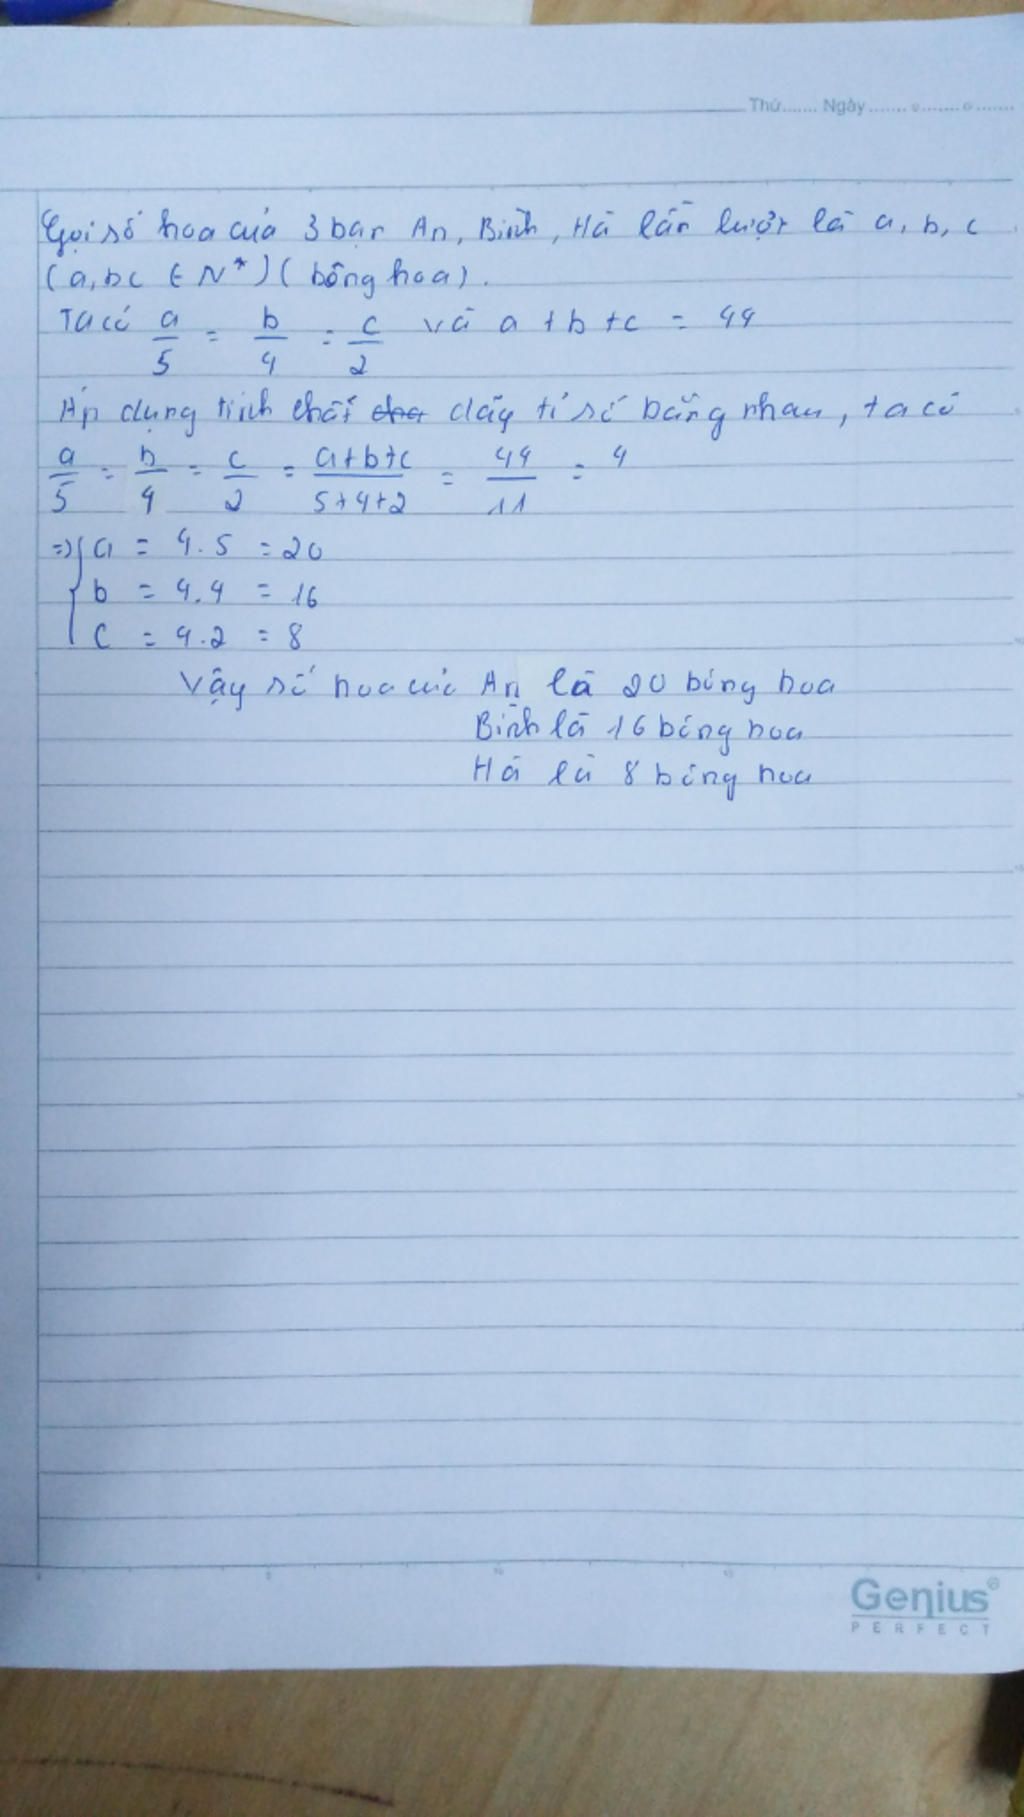 Thứ....... Ngày....... o ....... o .......
Gọi số hoa của 3 bạn An, Bình, Hà lần lượt là a, b, c
(a, b c ∈ N*) ( bông hoa).
Ta có a/5 = b/4 = c/2 và a + b + c = 44
Áp dụng tính chất dãy tỉ số bằng nhau, ta có
a/5 = b/4 = c/2 = a+b+c/5+4+2 = 44/11 = 4
=> { a = 4.5 = 20
b = 4.4 = 16
c = 4.2 = 8
Vậy số hoa của An là 20 bông hoa
Bình là 16 bông hoa
Hà là 8 bông hoa
Genius
PERFECT